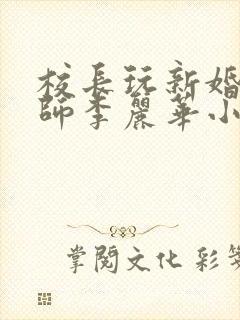 校長玩新婚
師李麗華小
掌閱文化 彩筆